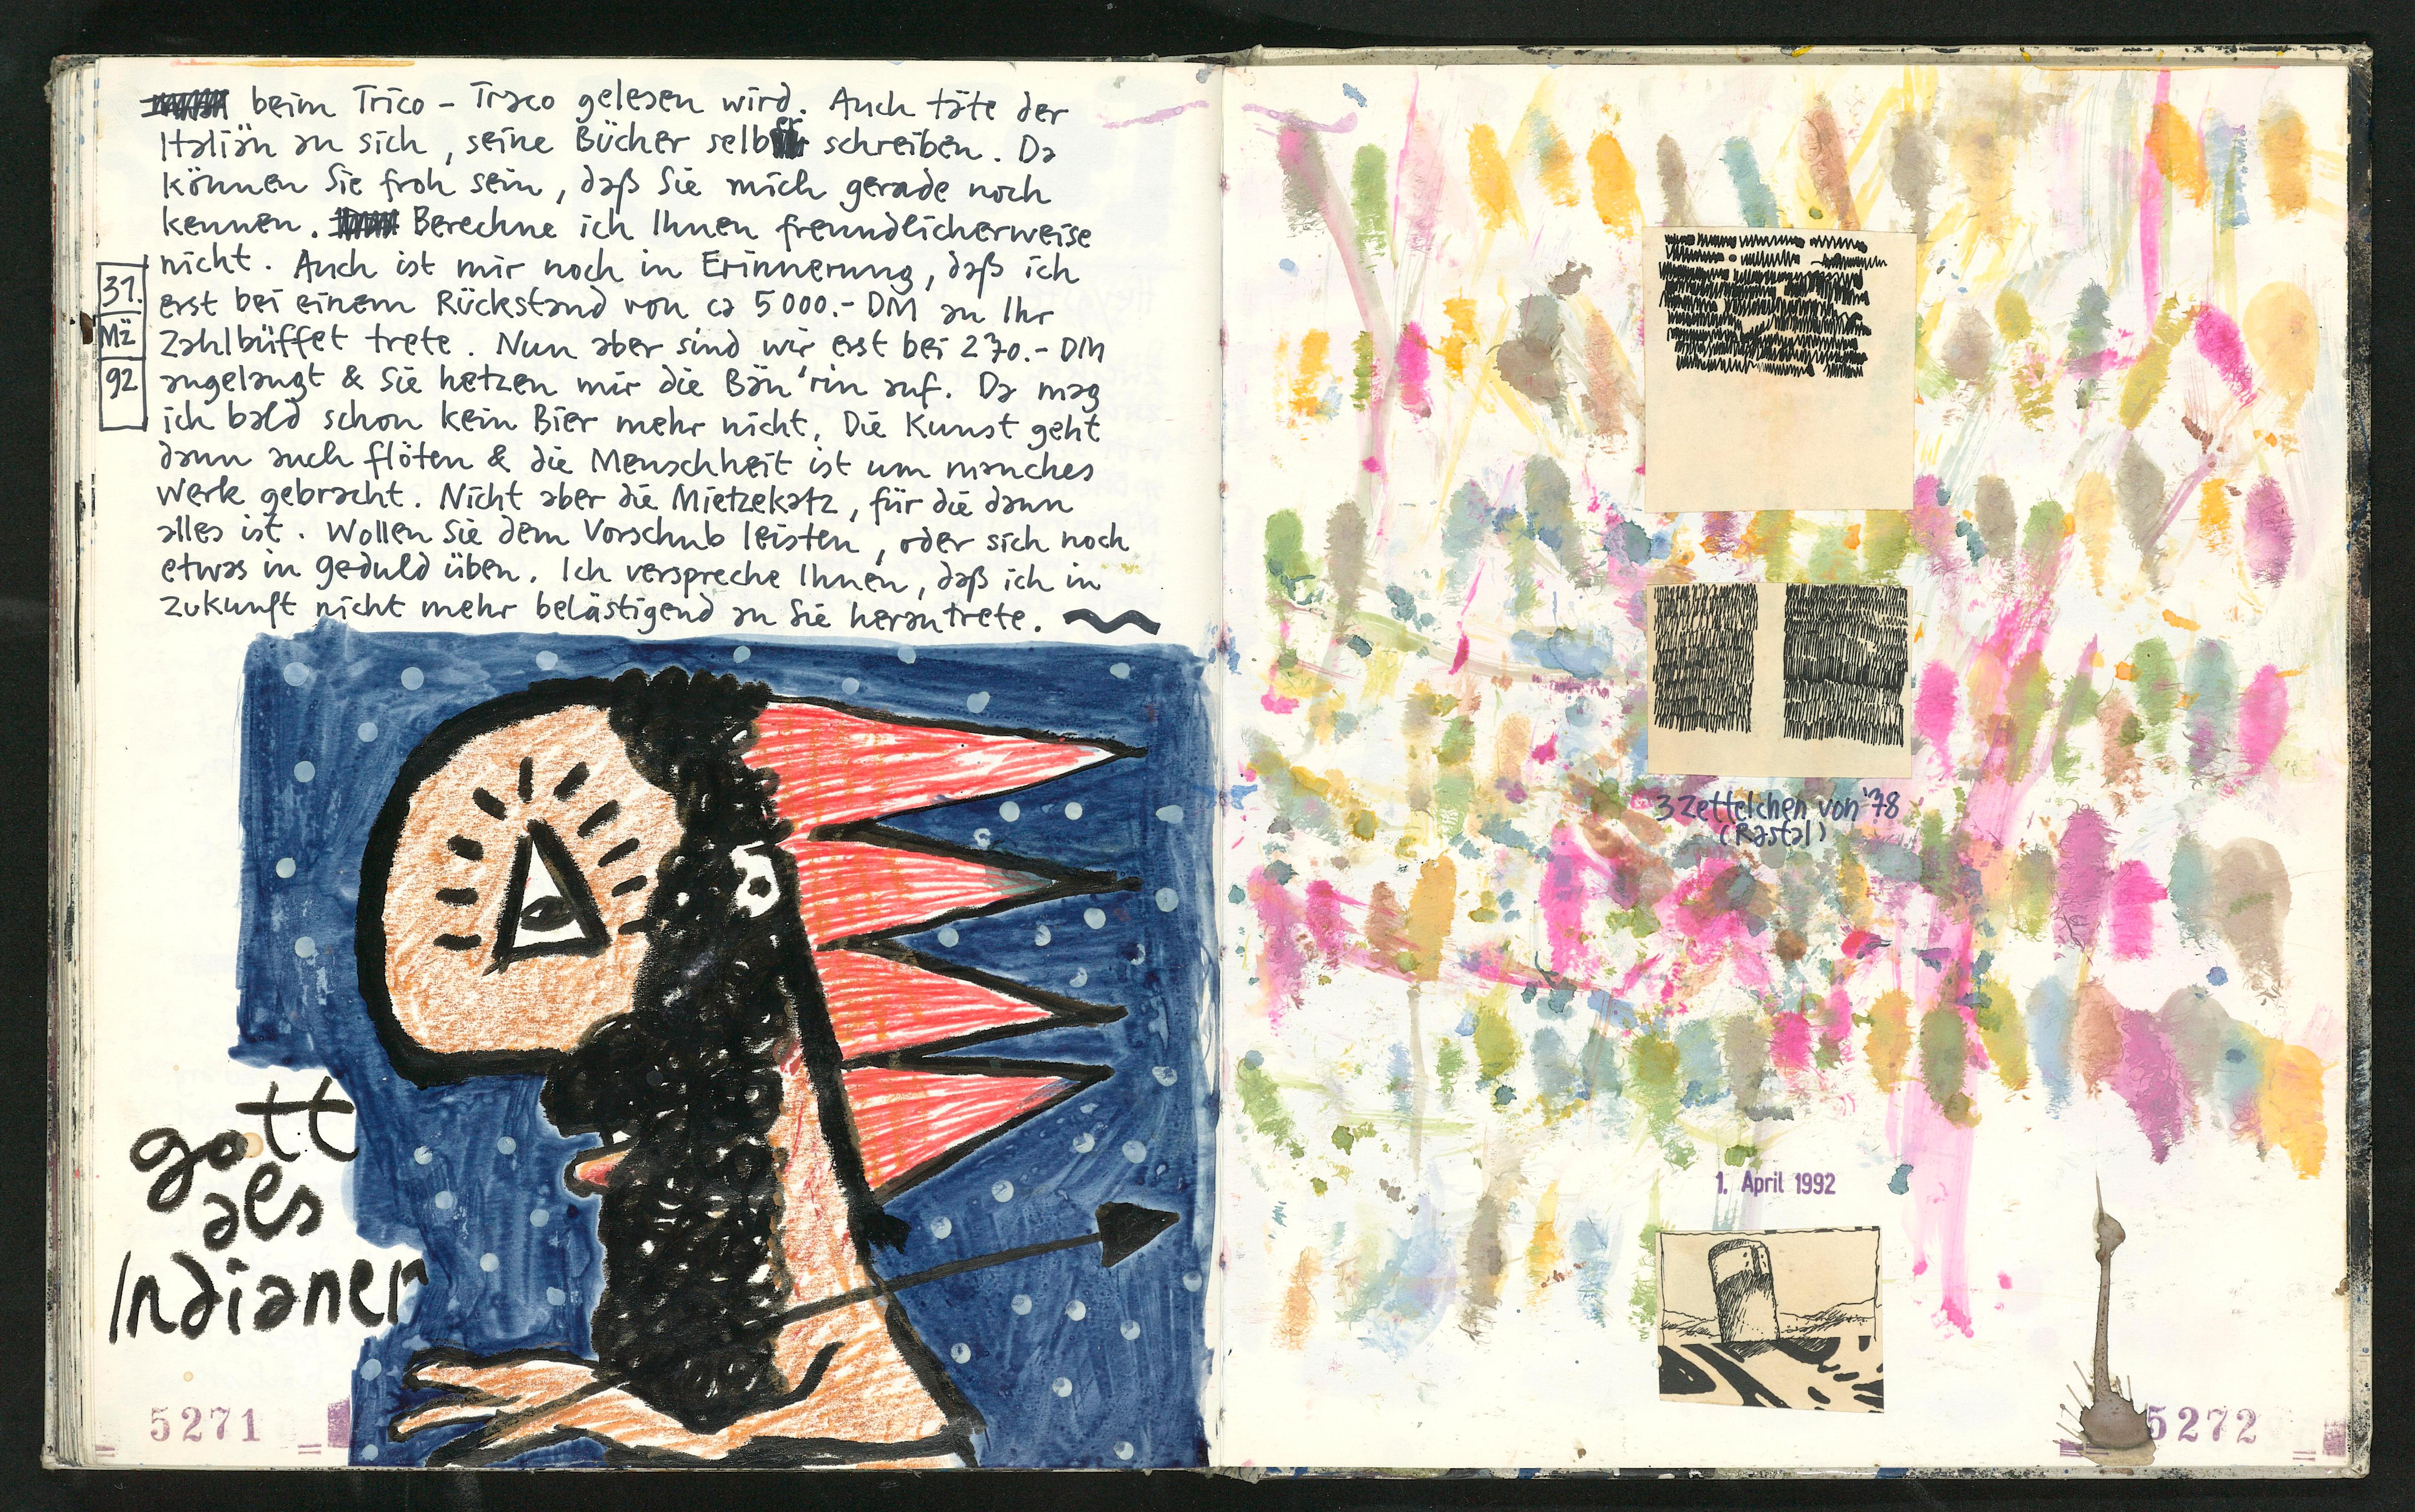 beim Trico - Traco gelesen wird. Auch täte der
Italiän an sich, seine Bücher selber schreiben. Da
können Sie froh sein, daß Sie mich gerade noch
kennen. Berechne ich Ihnen freundlicherweise
nicht. Auch ist mir noch in Erinnerung, daß ich
erst bei einem Rückstand von ca 5000.- DM an Ihr
Zahlbüffet trete. Nun aber sind wir erst bei 270.- DM
angelangt & Sie hetzen mir die Bän'rin auf. Da mag
ich bald schon kein Bier mehr nicht. Die Kunst geht
dann auch flöten & die Menschheit ist um manches
Werk gebracht. Nicht aber die Mietzekatz, für die dann
alles ist. Wollen Sie dem Vorschub leisten, oder sich noch
etwas in Geduld üben. Ich verspreche Ihnen, daß ich in
Zukunft nicht mehr belästigend an Sie herantrete.
31.
Mä
92
gott
als
Indianer
5271
3 Zettelchen von '78
(Rastal)
1. April 1992
5272